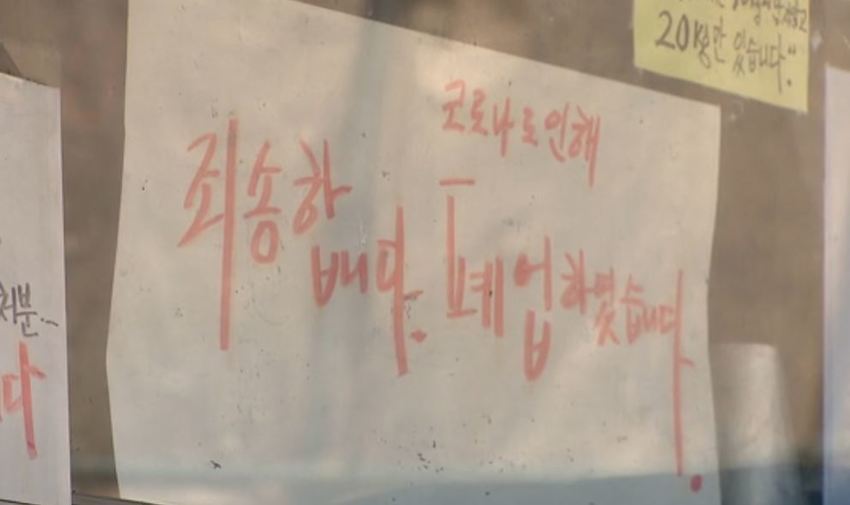 코로나로 인해
죄송합니다. 폐업하였습니다.
20kg만 있습니다..
처분...
다